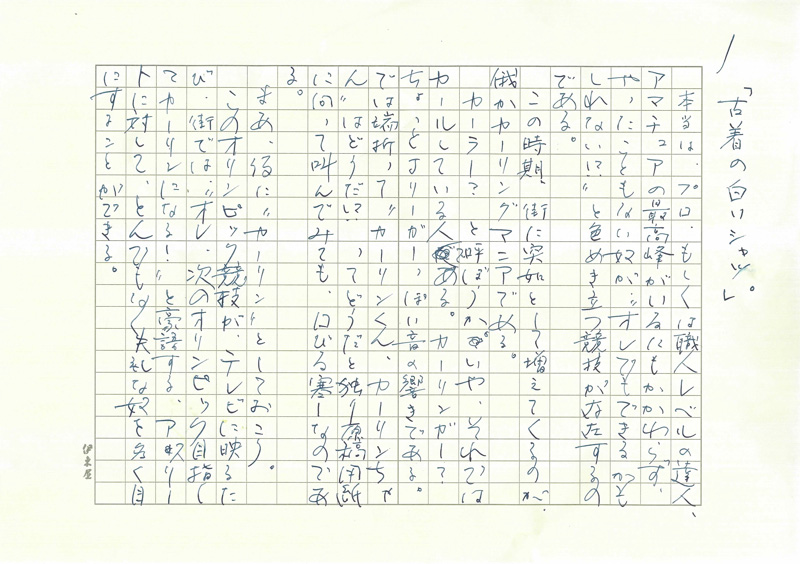 「古着の白いシャツ」。
本当は、プロ、もしくは職人レベルの達人、
アマチュアの最高峰がいるにもかかわらず、
やったこともない奴が〝オレでもできるかも
しれない!?〟と色めき立つ競技が存在するの
である。
この時期、街に突如として増えてくるのが、
俄かカーリングマニアである。
カーラー?と呼ぼうか。いや、それでは
カールしている人である。カーリンガー?
ちょっとよりーがーっぽい音の響きである。
では端折って〝カーリンくん、カーリンちゃ
ん〟はどうだ!?ってどうだと独り原稿用紙
に向って叫んでみても、口びる寒しなのであ
る。
まあ、仮に〝カーリン〟としておこう。
このオリンピック競技が、テレビに映るた
び、街では〝オレ、次のオリンピック目指し
てカーリンになる!〟と豪語する、アスリー
トに対して、とんでもなく失礼な奴を多く目
にすることができる。
伊東屋